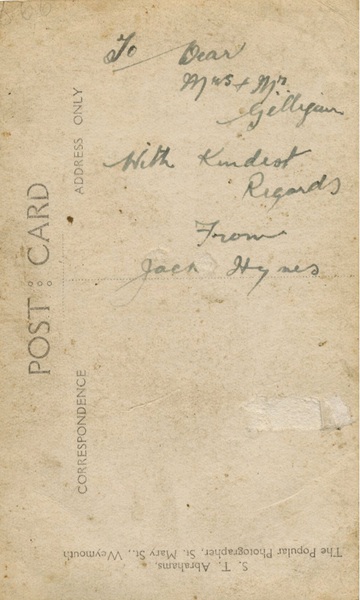 To Dear
Mrs + Mr
Gilligan
With Kindest
Regards
From
Jack Hynes
POST CARD
ADDRESS ONLY
CORRESPONDENCE
S. T. Abrahams,
The Popular Photographer, St. Mary St., Weymouth